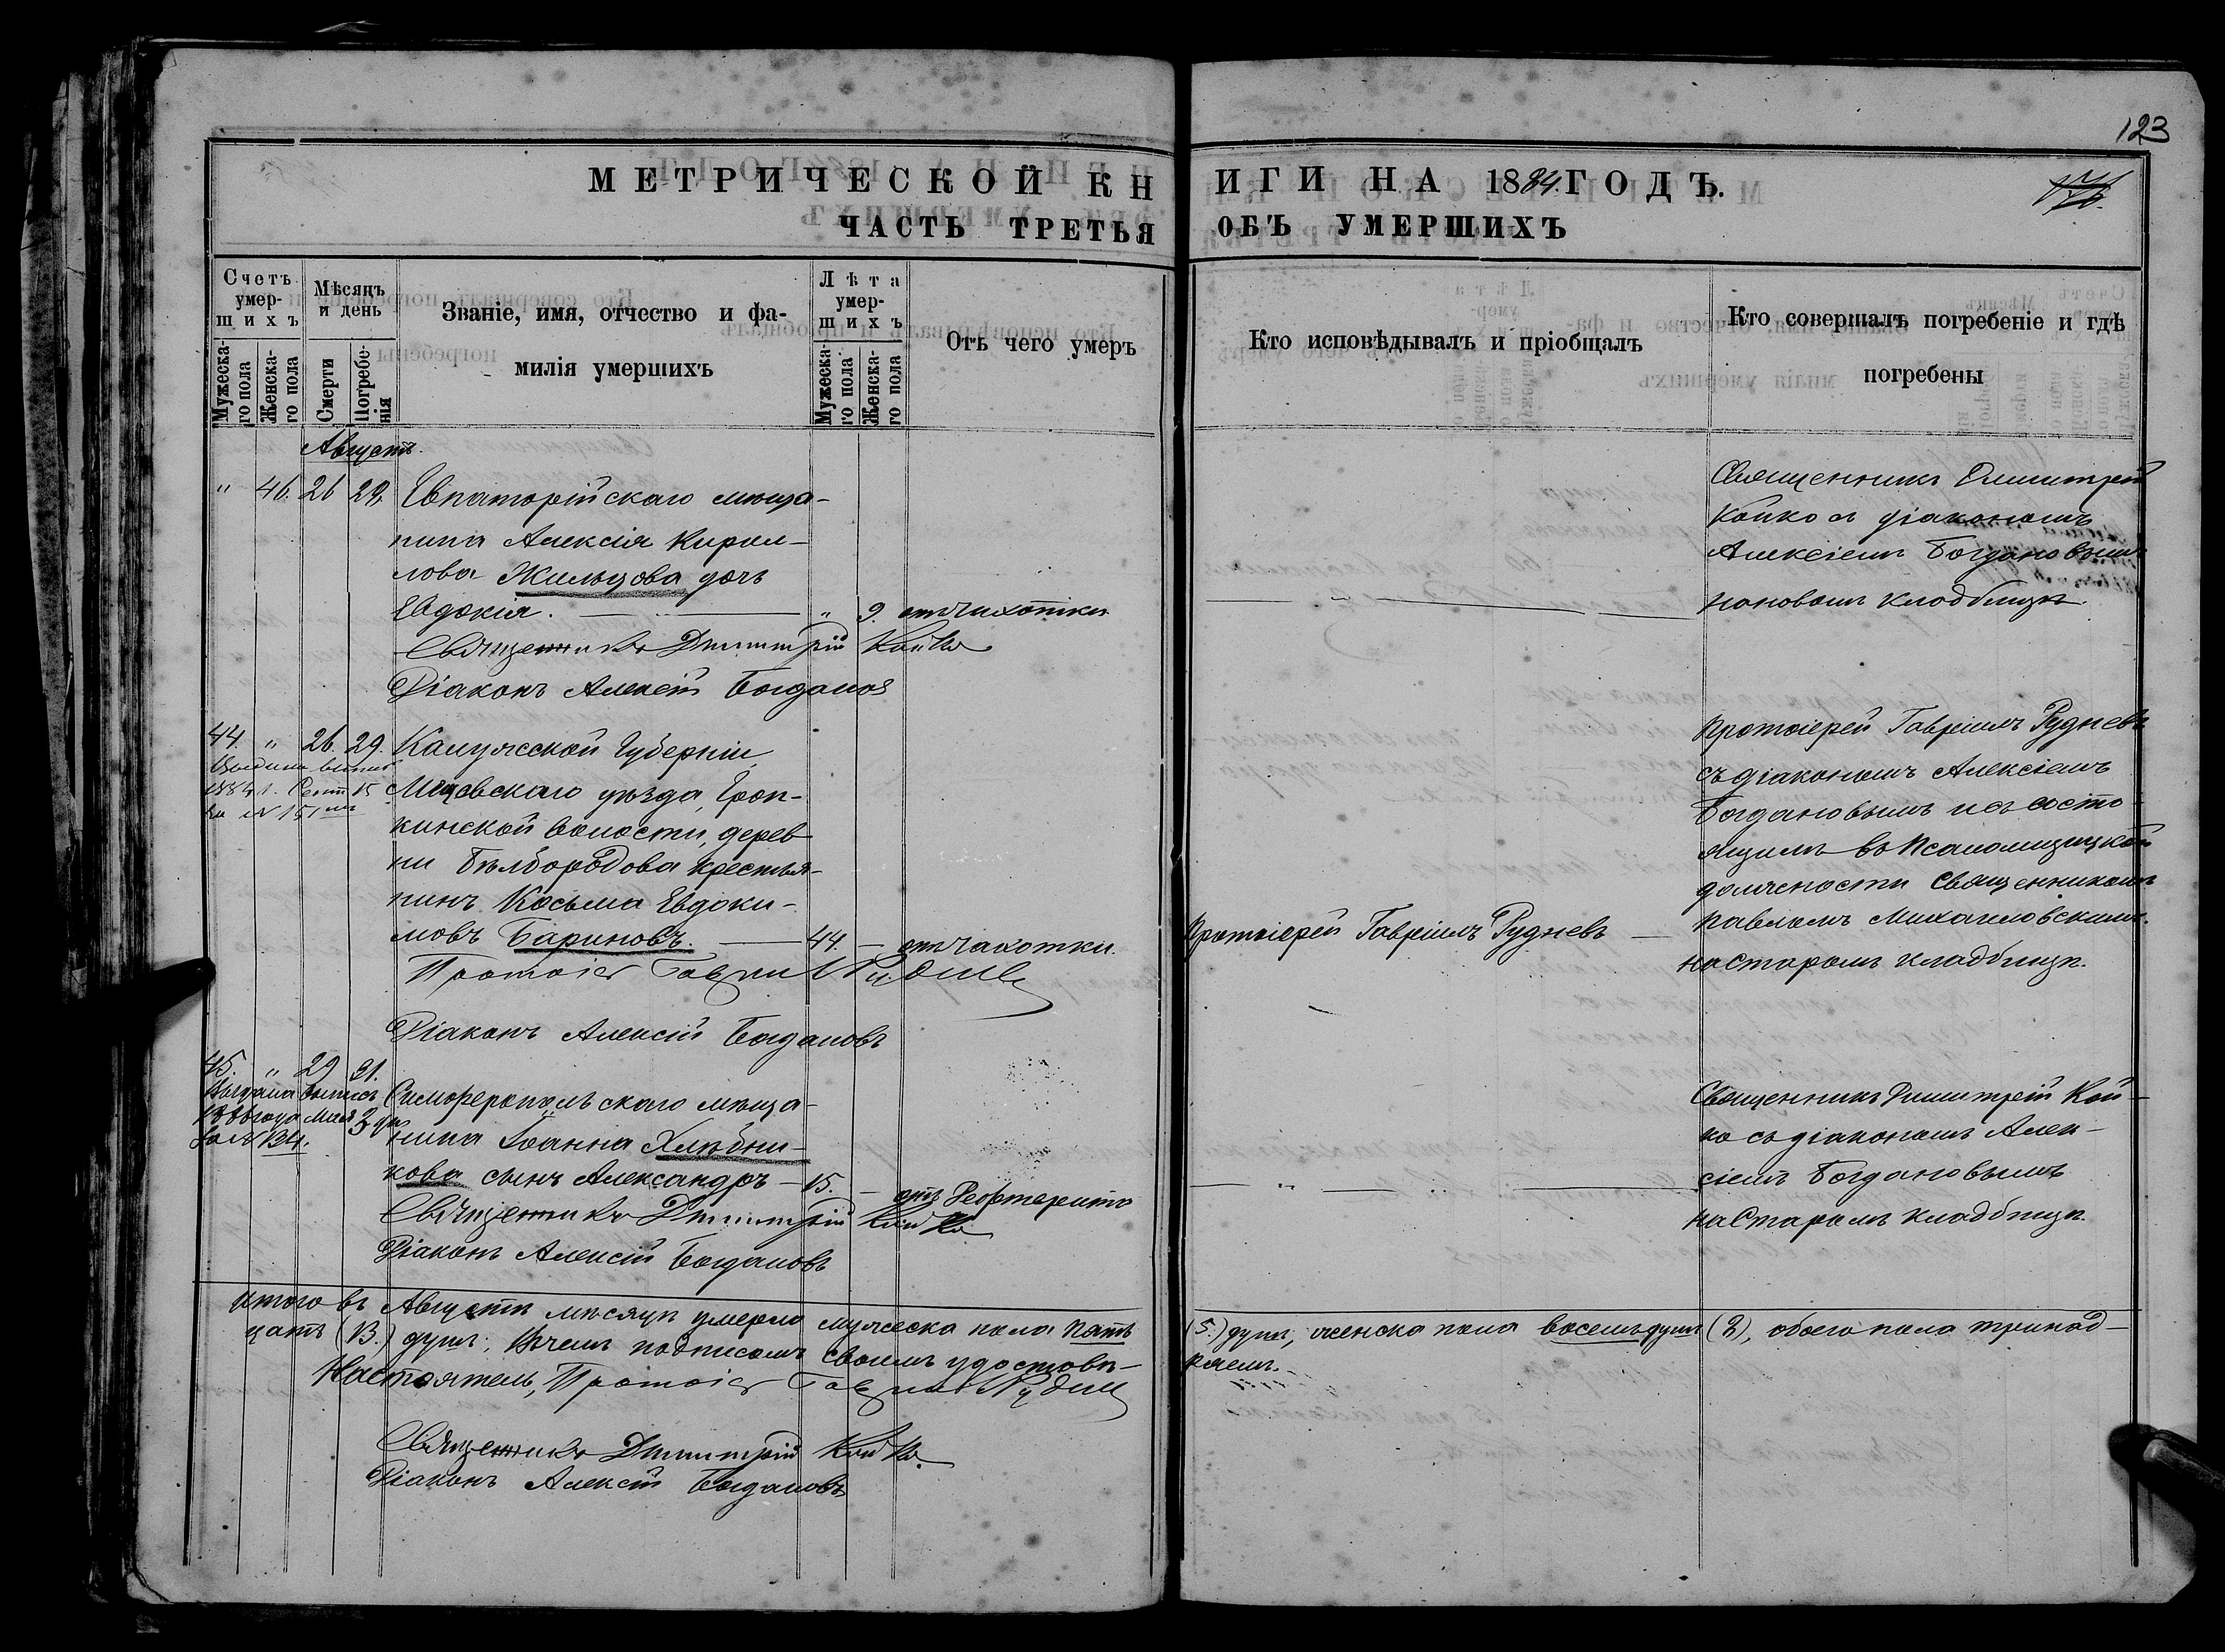 123
МЕТРИЧЕСКОЙ КНИГИ НА 1884 ГОДЪ.
ЧАСТЬ ТРЕТЬЯ ОБЪ УМЕРШИХЪ
Счетъ умершихъ
Мужескаго пола
Женскаго пола
Мѣсяцъ и день
Смерти
Погребенія
Званіе, имя, отчество и фамилія умершихъ
Лѣта умершихъ
Мужескаго пола
Женскаго пола
Отъ чего умеръ
Кто исповѣдывалъ и пріобщалъ
Кто совершалъ погребеніе и гдѣ погребены
Августъ.
" 46. 26 29. Евпаторійскаго мѣща-
нина Алексія Кирил-
лова Жильцова дочь
Евдокія. — " 9. отъ чахотки
Священникъ Димитрій Койко
Діаконъ Алексій Богдановъ
Священникъ Димитрій
Койко съ діакономъ
Алексіемъ Богдановымъ
на новомъ кладбищѣ.
44. " 26. 29. Калужской Губерніи,
1884 г. Сент. 15
за № 151
Мещовскаго уѣзда,
кинской волости, дерев
ни Бѣлбородова крестья-
нинъ Косьма Евдоки-
мовъ Бариновъ. — 44. — отъ чахотки.
Протоіер Гавріилъ Рудневъ
Діаконъ Алексій Богдановъ
Протоіерей Гавріилъ Рудневъ
Протоіерей Гавріилъ Рудневъ
съ діакономъ Алексіемъ
Богдановымъ и съ состо
ящимъ въ Псаломщицкой
должности Священникомъ
Павломъ Михайловскимъ.
на Старомъ кладбищѣ.
45. " 29 31.
Выдана выпись
года Мая 3 дня
за № 134.
Симферопольскаго мѣща-
нина Іоанна Хлѣбни-
кова сынъ Александръ — 15. — отъ
Священникъ Димитрій Койко
Діаконъ Алексій Богдановъ
Священникъ Димитрій Кой-
ко съ діакономъ Алек-
сіемъ Богдановымъ
на Старомъ кладбищѣ.
Итого въ Августѣ мѣсяцѣ умерло мужеска пола пять (5.) душъ, женска пола восемь душъ (8), обоего пола тринад-
цать (13.) душъ; въ чемъ подписомъ своимъ удостовѣ-
ряемъ.
Настоятель, Протоіер Гавріилъ Рудневъ
Священникъ Димитрій Койко.
Діаконъ Алексій Богдановъ